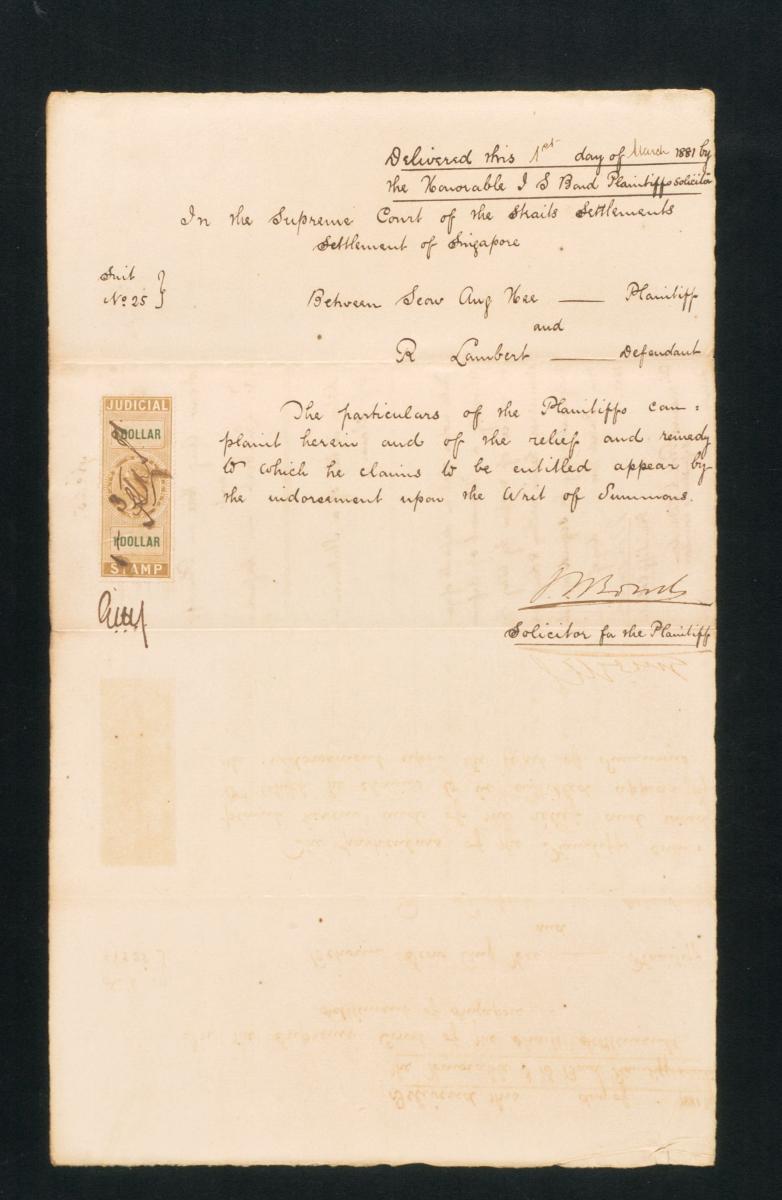 Delivered this 1st day of March 1881 by
the Honorable I S Bond Plaintiffs solicitor
In the Supreme Court of the Straits Settlements
Settlement of Singapore
Suit
No 25
Between Seow Ang Kee — Plaintiff
and
R Lambert — Defendant
JUDICIAL
1 DOLLAR
1 DOLLAR
STAMP
The particulars of the Plaintiffs com=
plaint herein and of the relief and remedy
to which he claims to be entitled appear by
the indorsement upon the Writ of Summons.
Solicitor for the Plaintiff